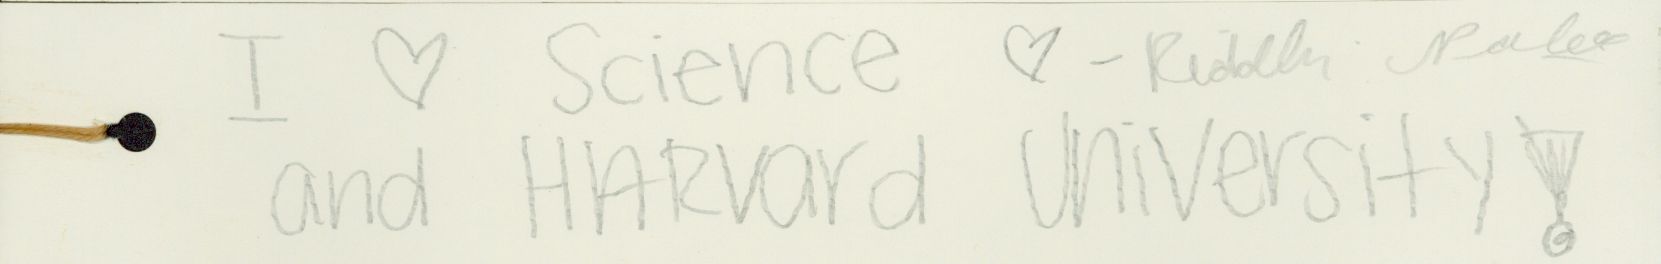 I ♡ Science ♡ - Riddhi
and HARvard University!